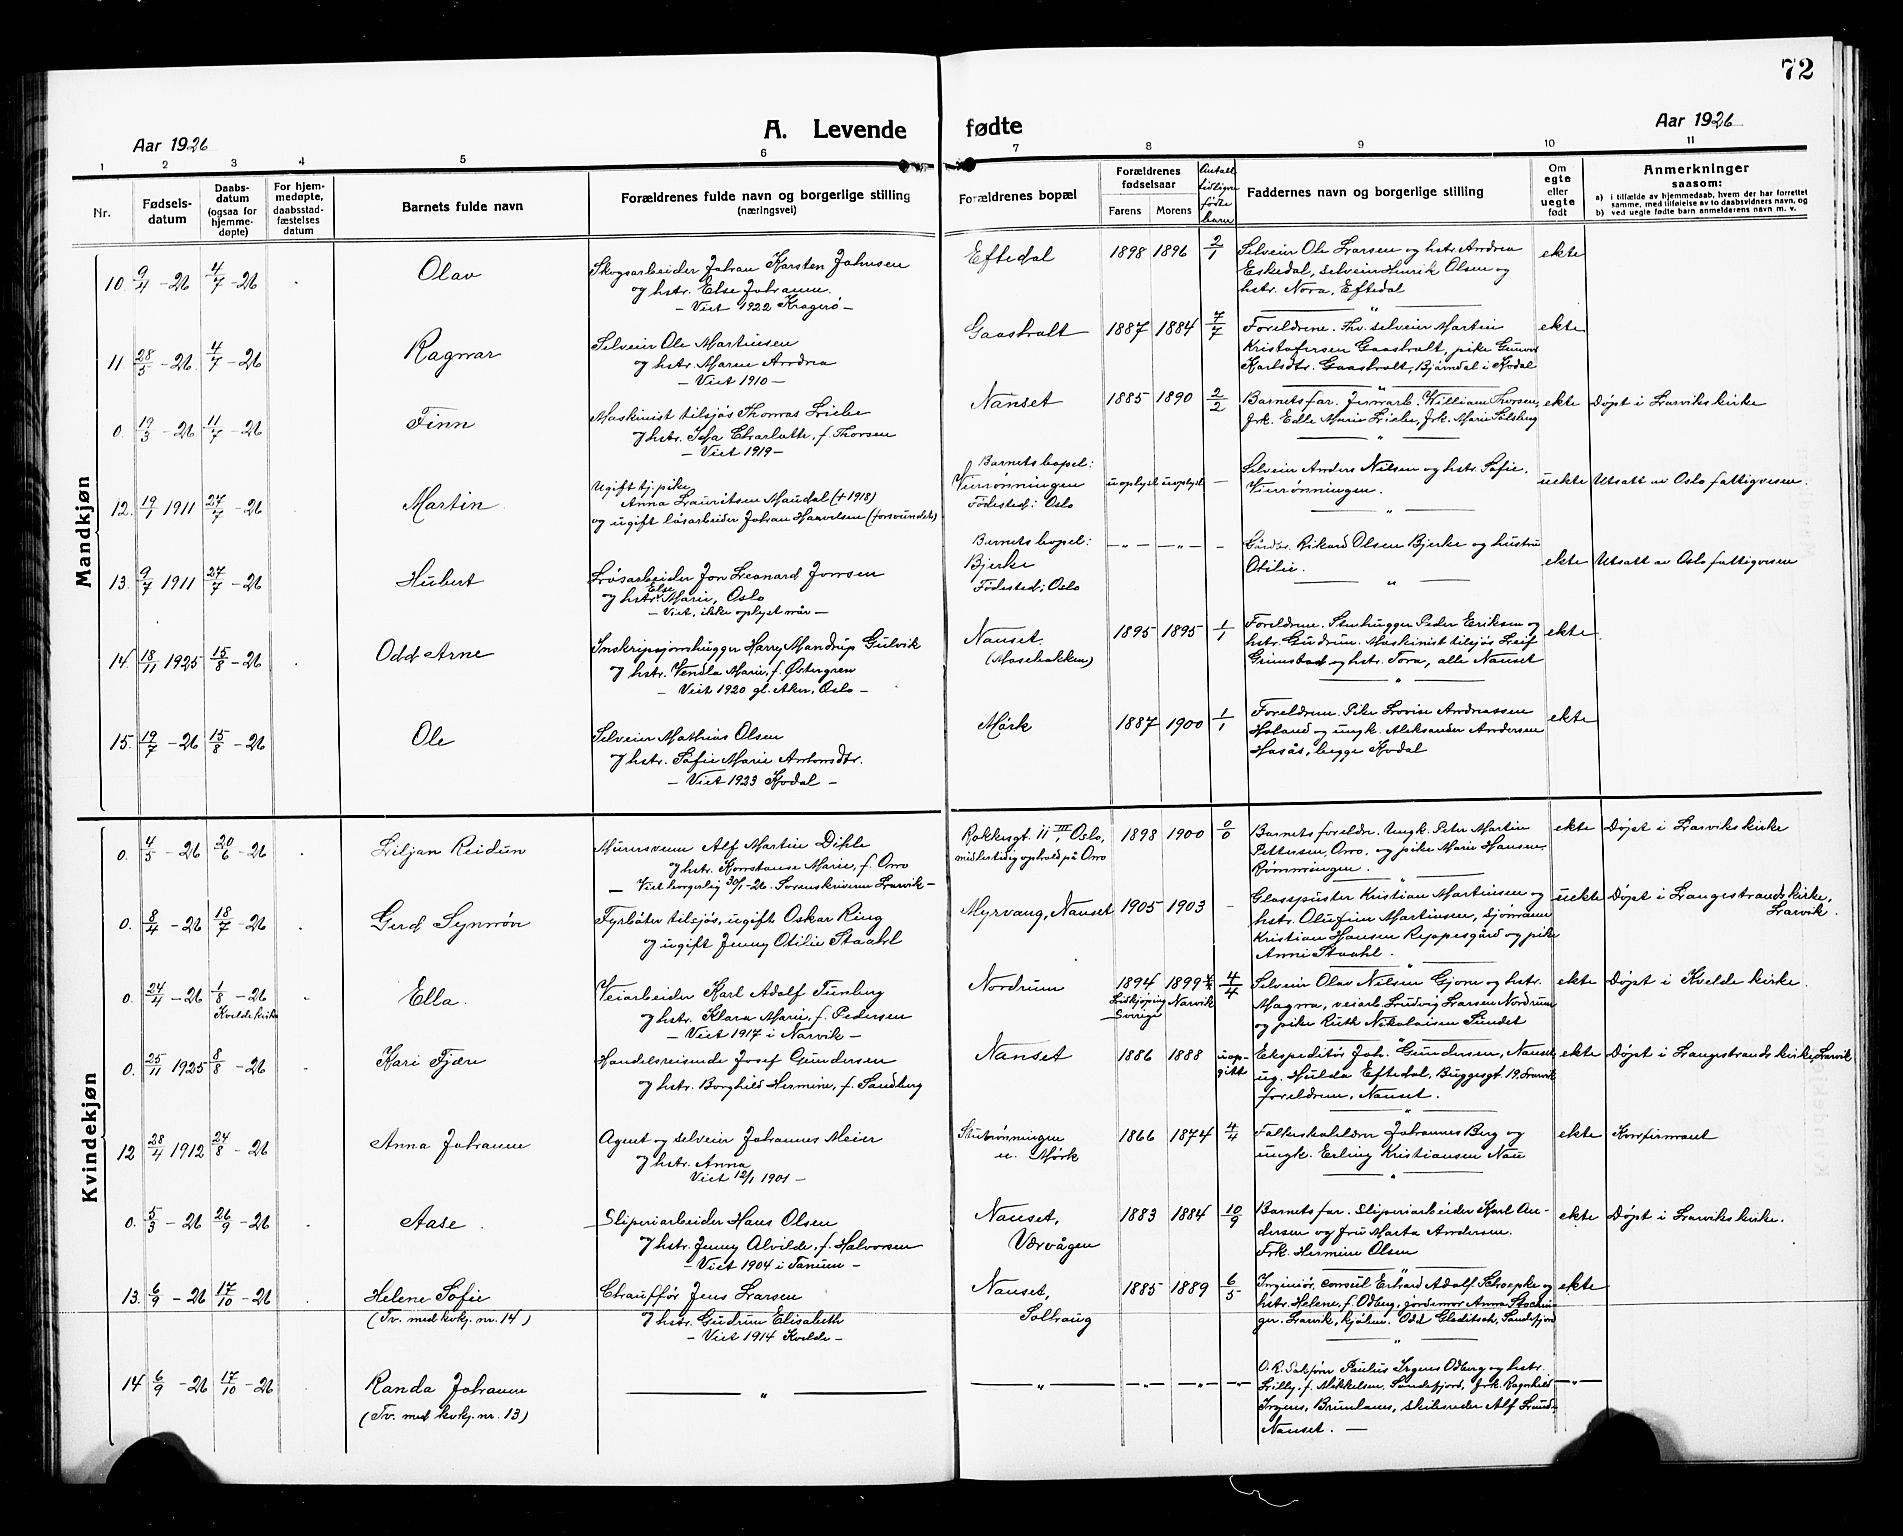 72
Aar 1926
A. Levende fødte
Aar 1926
1 2 3 4 5 6 7 8 9 10 11
Nr.
Fødsels-
datum
Daabs-
datum
(ogsaa for
hjemme-
døpte)
For hjem-
medøpte,
daabsstad-
fæstelses
datum
Barnets fulde navn
Forældrenes fulde navn og borgerlige stilling
(næringsvei)
Forældrenes bopæl
Forældrenes
fødselsaar
Farens Morens
Antall
tidligere
fødte
barn
Faddernes navn og borgerlige stilling
Om
egte
eller
uegte
født
Anmerkninger
saasom:
a) i tilfælde av hjemmedaab, hvem der har forrettet
samme, med tilføielse av to daabsvidners navn, og
b) ved uegte fødte barn anmelderens navn m. v.
Mandkjøn
10. 9/4 - 26 4/7 - 26 Olav
Skogsarbeider Johan Karsten Johnsen
og hstr. Else Johanne.
- Viet 1922 Kragerø -
Eftedal 1898 1896 2/1
Selveier Ole Larsen og hstr. Andrea
Eskedal, selveier Henrik Olsen og
hstr. Nora, Eftedal
ekte
11. 28/5 - 26 4/7 - 26 Ragnar
Selveier Ole Martinsen
og hstr. Maren Andrea
- Viet 1910 -
Gaasholt 1887 1884 7/7
Foreldrene. Fhv. selveier Martin
Kristofersen Gaasholt, pike Gunvor
Karlsdtr. Gaasholt, Bjørndal i Kodal
ekte
0. 19/3 - 26 11/7 - 26 Finn
Maskinist tilsjøs Thomas Lielie
og hstr. Ida Charlotte, f. Thorsen
- Viet 1919 -
Nanset 1885 1890 2/2
Barnets far. Jernarb. William Thorsen,
frk. Edle Marie Lielie, frk. Marie Solberg
ekte Døpt i Larviks kirke
12. 19/1 1911 27/7 - 26 Martin
Ugift tj. pike
Anna Lauritsen Maudal († 1918)
og ugift løsarbeider Johan Haavelsen (forsvundet)
Barnets bopel:
Vierrønningen
Fødested: Oslo
uoplyst uoplyst -
Selveier Anders Nilsen og hstr. Sofie,
Vierrønningen.
uekte Utsatt av Oslo fattigvesen.
13. 9/7 1911 27/7 - 26 Hubert
Løsarbeider Jon Leonard Jonsen
og hstr. Else Marie, Oslo
- Viet, ikke oplyst når -
Barnets bopel:
Bjerke
Fødested: Oslo
- " - - " - -
Gårdbr. Rikard Olsen Bjerke og hustru
Otilie.
ekte Utsatt av Oslo fattigvesen
14. 18/11 1925 15/8 - 26 Odd Arne
Inskripsjonshugger Harry Mandrup Gulvik
og hstr. Vendla Marie, f. Østergren
- Viet 1920 gl. Aker, Oslo -
Nanset
(Mosebakken)
1895 1895 1/1
Foreldrene. Stenhugger Peder Eriksen og
hstr. Gudrun. Maskinist tilsjøs Leif
Grimstad og hstr. Tora, alle Nanset
ekte
15. 19/7 - 26 15/8 - 26 Ole
Selveier Mathias Olsen
og hstr. Sofie Marie Antonsdtr.
- Viet 1923 Kodal -
Mørk 1887 1900 1/1
Foreldrene. Pike Lovise Andreassen
Holand og ungk. Aleksander Andersen
Hasås, begge Kodal
ekte
Kvindekjøn
0. 4/5 - 26 20/6 - 26 Liljan Reidun
Murersvenn Alf Martin Dihle
og hstr. Konstanse Marie, f. Orro
- Viet borgerlig 30/1 - 26. Sorenskriveren Larvik -
Rokkesgt. 11 III, Oslo,
midlertidig ophold på Orro
1898 1900 0/0
Barnets foreldre. Ungk. Peter Martin
Pettersen, Orro, og pike Marie Hansen
Rønningen.
ekte Døpt i Larviks kirke
0. 8/4 - 26 18/7 - 26 Gerd Synnøv
Fyrbøter tilsjøs, ugift Oskar Ring
og ugift Jenny Otilie Staahl
Myrvang, Nanset 1905 1903 -
Glasspuster Kristian Martinsen og
hstr. Olufine Martinsen, sjømann
Kristian Hansen Reppesgård og pike
Anni Staahl.
uekte Døpt i Langestrands kirke,
Larvik.
0. 24/4 - 26 1/8 - 26 Ella.
Kvelde kirke
Veiarbeider Karl Adolf Tunberg
og hstr. Klara Marie, f. Pedersen
- Viet 1917 i Narvik -
Nordrum 1894 1899 4/4
Lidkjøping
Sverige
Narvik
Selveier Olav Nilsen Gjone og hstr.
Magna, veiarb. Ludvig Larsen Nordrum
og pike Ruth Nikolaisen Sundet
ekte Døpt i Kvelde kirke.
0. 25/11 1925 8/8 - 26 Kari Fjære
Handelsreisende Josef Gundersen
og hstr. Borghild Hermine, f. Sandberg
Nanset 1886 1888 uop-
gitt
Ekspeditør Joh. Gundersen, Nanset,
ug. Hulda Eftedal, Byggesgt. 19, Larvik
foreldrene, Nanset.
ekte Døpt i Langestrands kirke, Larvik
12 28/4 1912 24/8 - 26 Anna Johanne
Agent og selveier Johannes Meier
og hstr. Anna
Viet 12/1 1901 -
Stubrønningen
u. Mørk
1866 1874 4/4
Johannes Berg og
ungk. Erling Kristiansen Nau
ekte Konfirmant
0. 5/3 - 26 26/9 - 26 Aase.
Sliperiarbeider Hans Olsen
og hstr. Jenny Alvilde, f. Halvorsen
- Viet 1904 i Tanum -
Nanset,
Værvågen
1883 1884 10/9
Barnets far. Sliperiarbeider Karl An-
dersen og fru Marta Andersen.
Frk. Hermine Olsen
ekte Døpt i Larviks kirke.
13. 6/9 - 26 17/10 - 26 Helene Sofie
(Tv. med kvkj. nr. 14)
Chauffør Jens Larsen
og hstr. Gudrun Elisabeth
- Viet 1914 Kvelde -
Nanset,
Solhaug
1885 1889 6/5
Ingeniør, consul Erhard Adolf Schoepke og
hstr. Helene, f. Odberg, jordmor Anna
Larvik, kjøbm. Odd Gleditsch, Sandefjord
ekte
14 6/9 - 26 17/10 - 26 Randa Johanne
(Tv. med kvkj. nr. 13)
- " - - " - - " - - " - - " -
O.R. Sakfører Paulus Irgens Odberg og hstr.
Lilly, f. Mikkelsen, Sandefjord, frk. Ragnhild
Irgens, Brunlanes, skibsreder Alf Lund,
Nanset. -